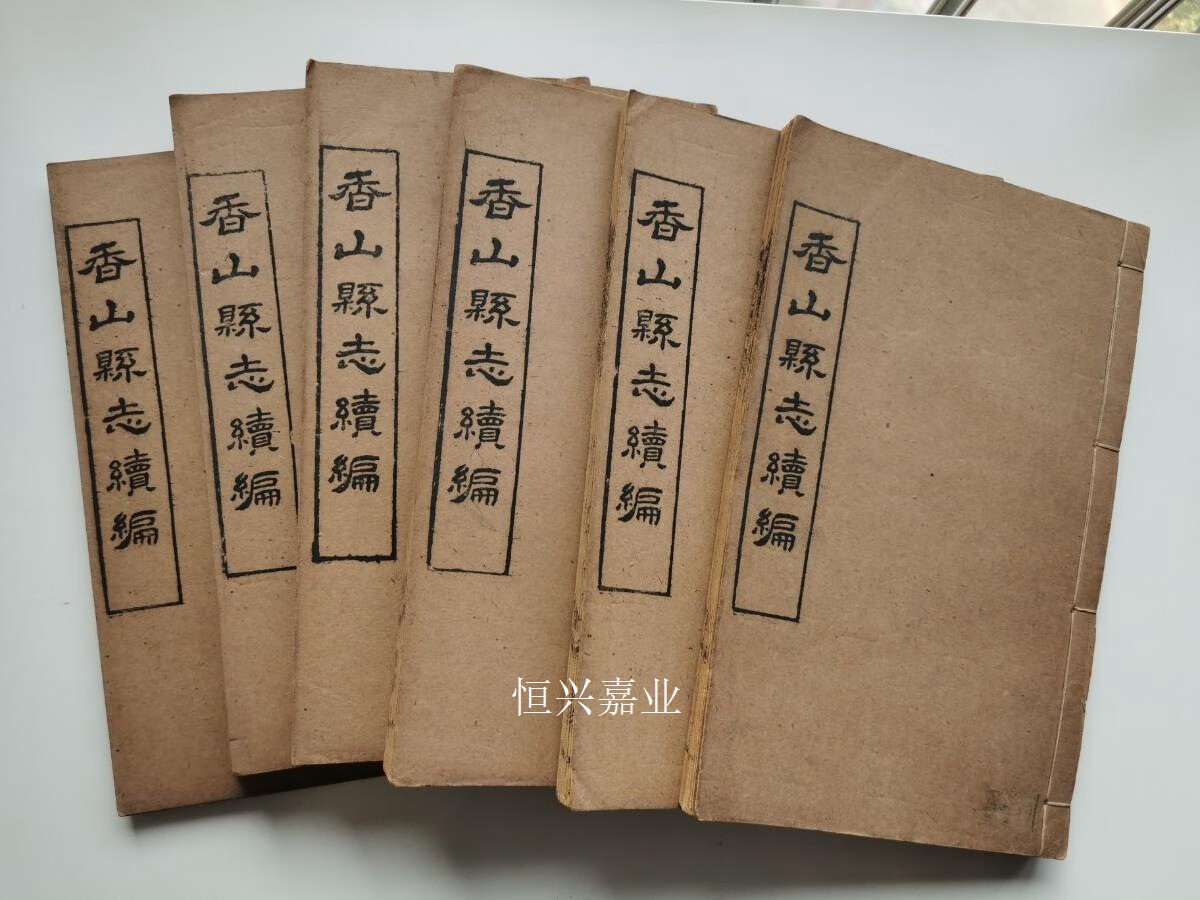 香山縣志續編
香山縣志續編
香山縣志續編
香山縣志續編
香山縣志續編
香山縣志續編
恒兴嘉业